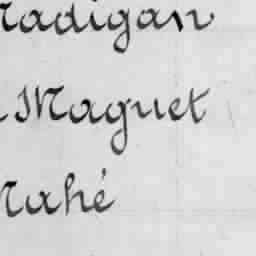 Madigan
Maguet
Mahé